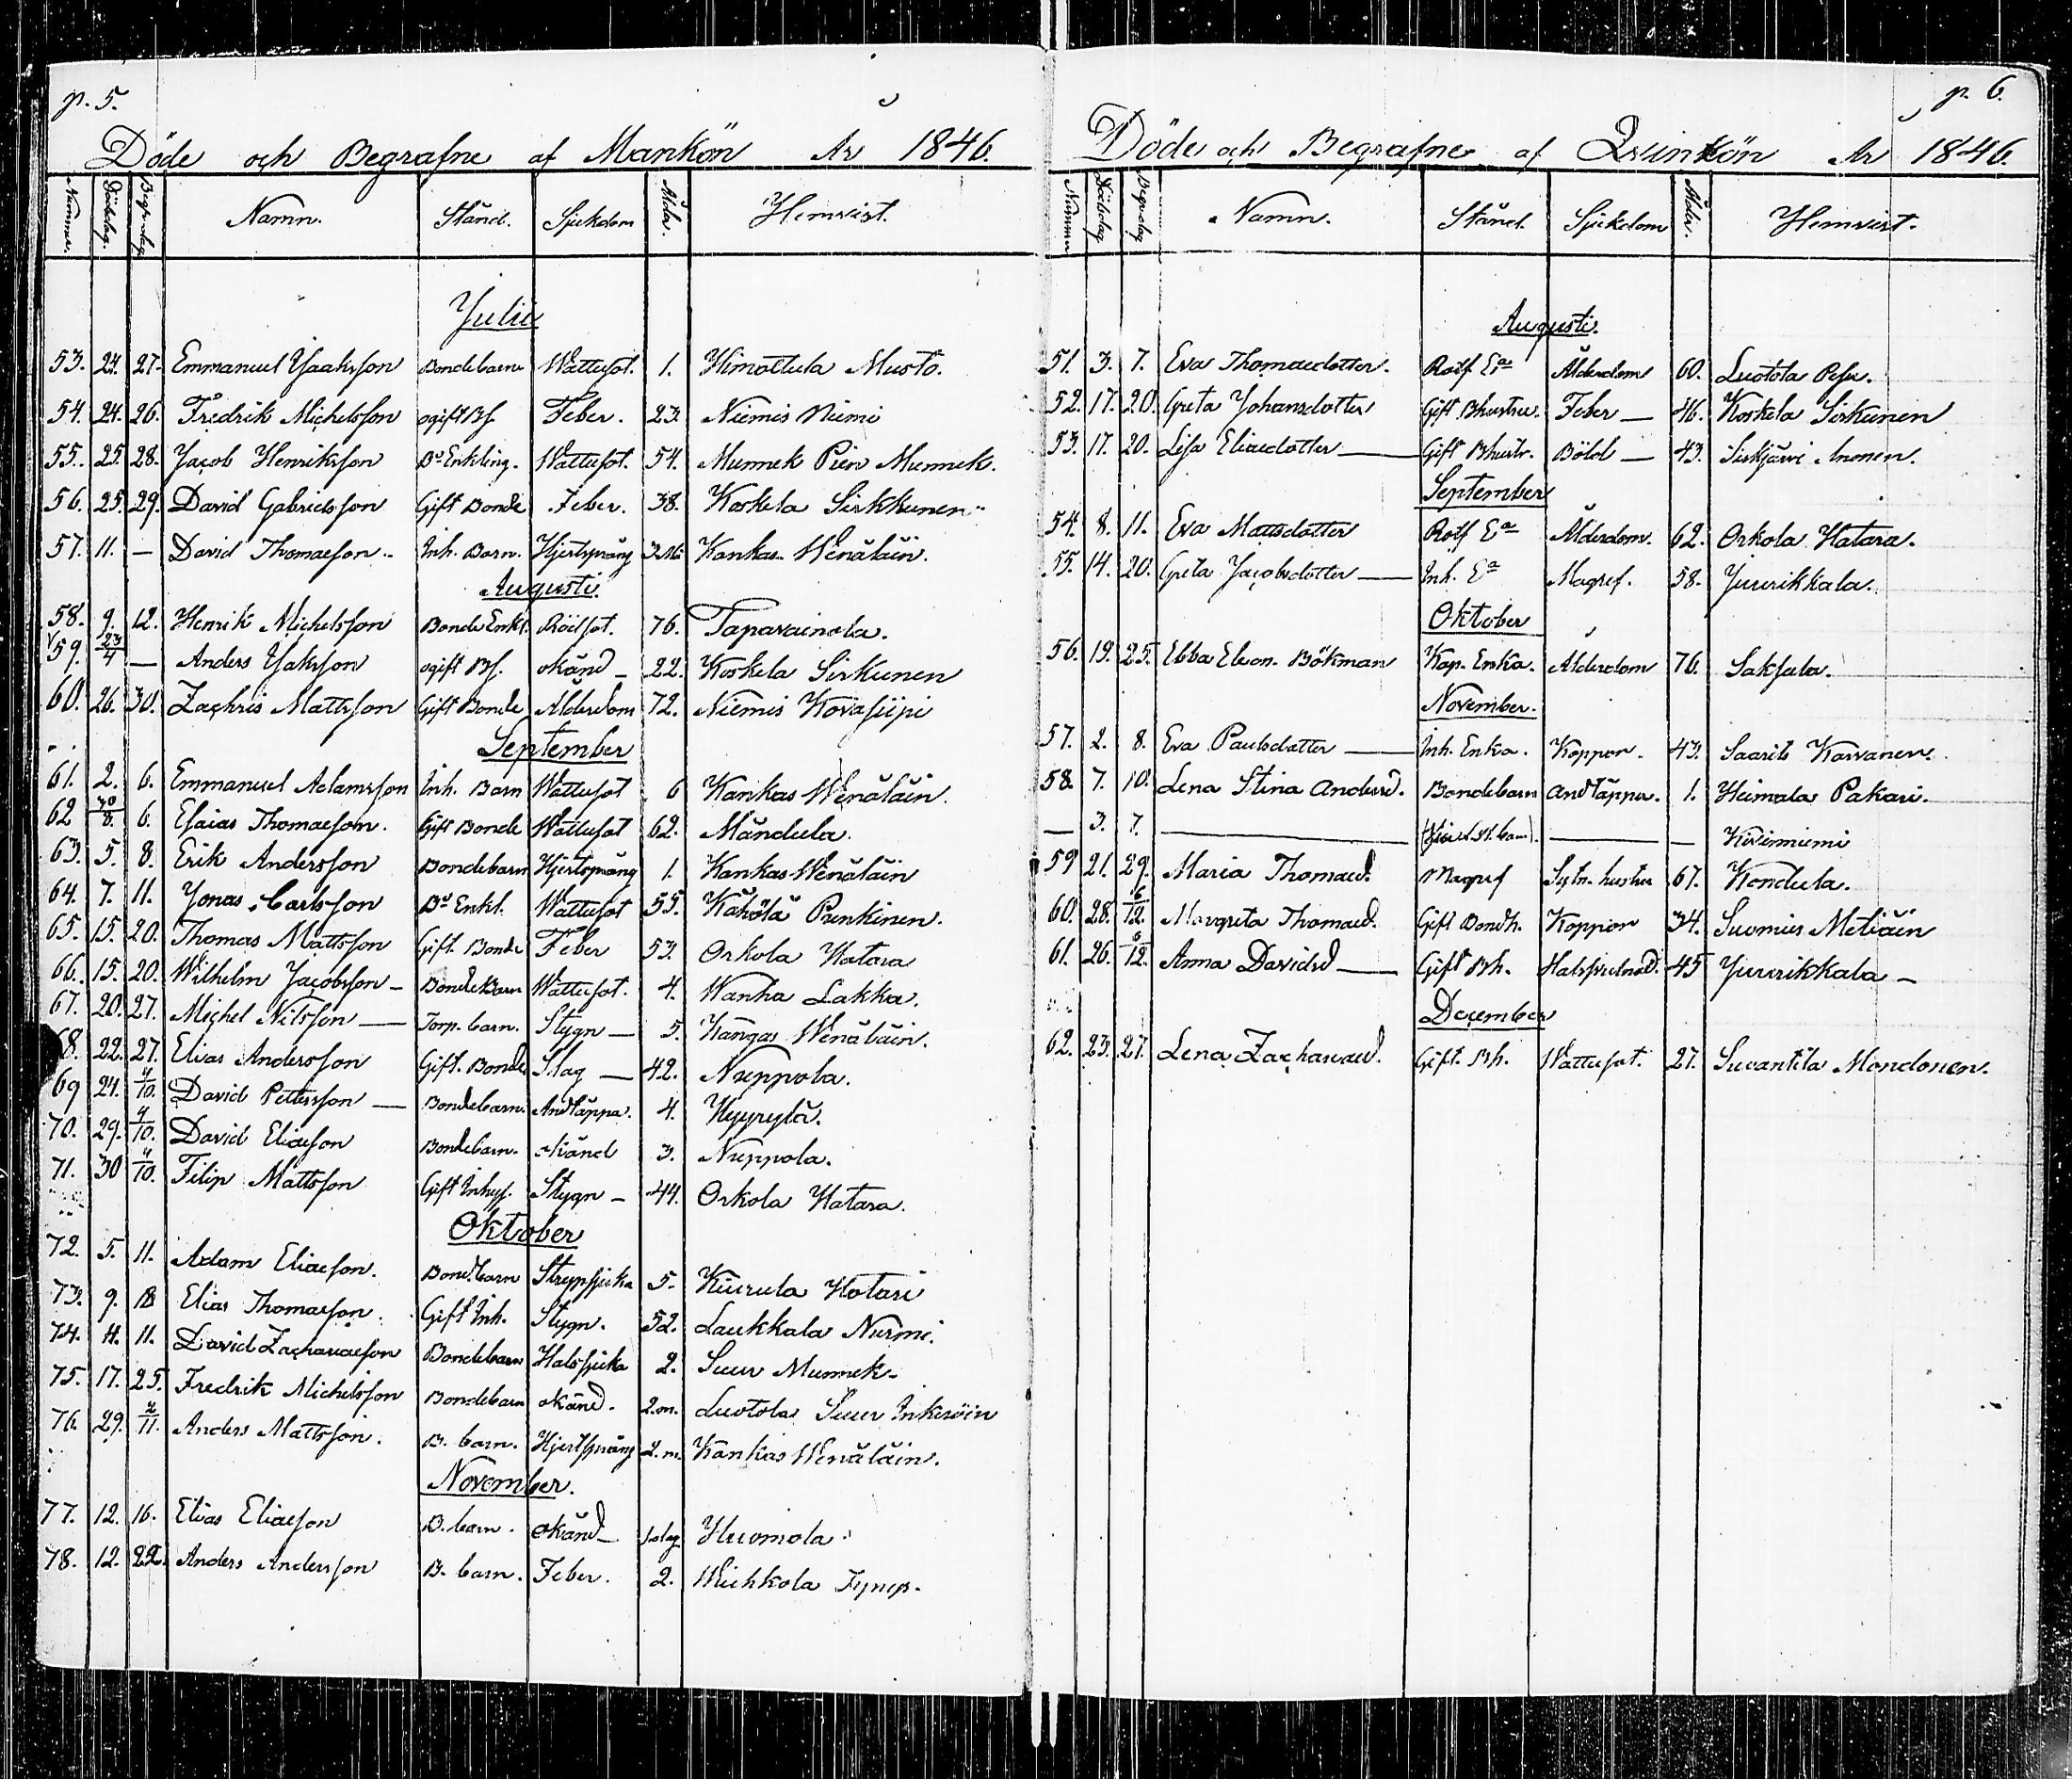 p. 5.
Döde och Begrafne af Mankön År 1846.
Nummer. Dödsdag. Begr.dag Namn. Stånd. Sjukdom Ålder. Hemvist.
Julii
53. 24. 27. Emmanuel Isaaksson Bondebarn Wattusot. 1. Himottula Musto.
54. 24. 26. Fredrik Michelsson ogift Bs. Feber. 23. Niemis Niemi
55. 25. 28. Jacob Henriksson Bd Enkling. Wattusot. 54. Munnek Pien Munnek.
56. 25. 29. David Gabrielsson Gift Bonde Feber. 38. Koskela Sirkkunen
57. 11. — David Thomasson Inh. Barn. Hjertsprång Kankas Wenäläin.
Augusti.
58. 9. 12. Henrik Michelsson Bonde Enkl. Rödsot. 76. Tapavainola.
59. 23/4 — Anders Isaksson ogift Bs. okänd 22. Koskela Sirkunen
60. 26. 30. Zachris Mattsson Gift Bonde Ålderdom 72. Niemis Kovasiipi
September
61. 2. 6. Emmanuel Adamsson Inh. Barn Wattusot 6 Kankas Wenäläin.
62 30/8. 6. Esaias Thomasson. Gift Bonde Wattusot 62. Mändula.
63. 5. 8. Erik Andersson Bondebarn Hjertsprång 1. Kankas Wenäläin
64. 7. 11. Jonas Carlsson Bd Enkl. Wattusot 55. Kähölä Punkinen.
65. 15. 20. Thomas Mattsson Gift. Bonde Feber 53. Orkola Hatara
66. 15. 20. Wilhelm Jacobsson — Bonde Barn Wattusot. 4. Wanha Lakka.
67. 20. 27. Michel Nilsson — Torp. barn. Stygn — 5. Kangas Wenäläin.
68. 22. 27. Elias Andersson Gift. Bonde Slag — 42. Nuppola.
69 24. 4/10. David Pettersson — Bondebarn. Andtäppa. 4. Hyyrylä.
70. 29. 4/10. David Eliasson Bondebarn. okänd 3. Nuppola.
71. 30 4/10. Filip Mattsson Gift Inhys. Stygn — 44. Orkola Hatara.
Oktober
72. 5. 11. Adam Eliasson. Bond.barn Strypsjuka 5. Kiurula Hotari
73. 9. 18 Elias Thomasson. Gift Inh. Stygn. 52. Laukkala Nurmi.
74. 4. 11. David Zachariasson Bondebarn Halssjuka 2. Suur Munnek.
75. 17. 25. Fredrik Michelsson Bondebarn okänd. 2.m. Luotola Suur Inkeröin
76. 29. 2/11. Anders Mattsson. B. barn. Hjertsprång 2. m. Kankas Wenäläin.
November.
77. 12. 16. Elias Eliasson B. barn. okänd 1 dag Huomola
78. 12. 22. Anders Andersson B. barn. Feber. 2. Wiehkola
p. 6.
Döde och Begrafne af Qvinkön År 1846.
Nummer Dödsdag Begr.dag Namn. Stånd. Sjukdom Ålder. Hemvist.
Augusti.
51. 3. 7. Eva Thomasdotter. Rotf Ea Ålderdom 60. Luotola Pesu.
52. 17. 20. Greta Johansdotter Gift Bhustru. Feber — 46. Koskela Sirkunen
53. 17. 20. Lisa Eliasdotter — Gift Bhustr. Böld — 43. Sirkjärvi Inonen.
September
54. 8. 11. Eva Mattsdotter Rotf Ea Ålderdom. 62. Orkola Hatara.
55. 14. 20. Greta Jacobsdotter — Inh. Ea Magref. 58. Jurvikkala.
Oktober
56. 19. 25. Ebba Eleon. Bökman Kap. Enka. Ålderdom 76. Saksala.
November.
57. 2. 8. Eva Paulsdotter — Inh. Enka. Koppor. 43. Saaris Karvanen.
58. 7. 10. Lena Stina Andersd. Bondebarn Andtäppa. 1. Heimala Pakari.
— 3. 7. — — — Kiviniemi
59 21. 29. Maria Thomasd. Magref Sytn. hustru 67. Kondula.
60. 28. 6/12. Margreta Thomasd. Gift Bondh. Koppor 34. Suomies Metiäin
61. 26. 6/12. Anna Davidsd — Gift Bh. 45 Jurvikkala —
December
62. 23. 27. Lena Zachariasd. Gift. Bh. Wattusot. 27. Suvantila Mondonen.